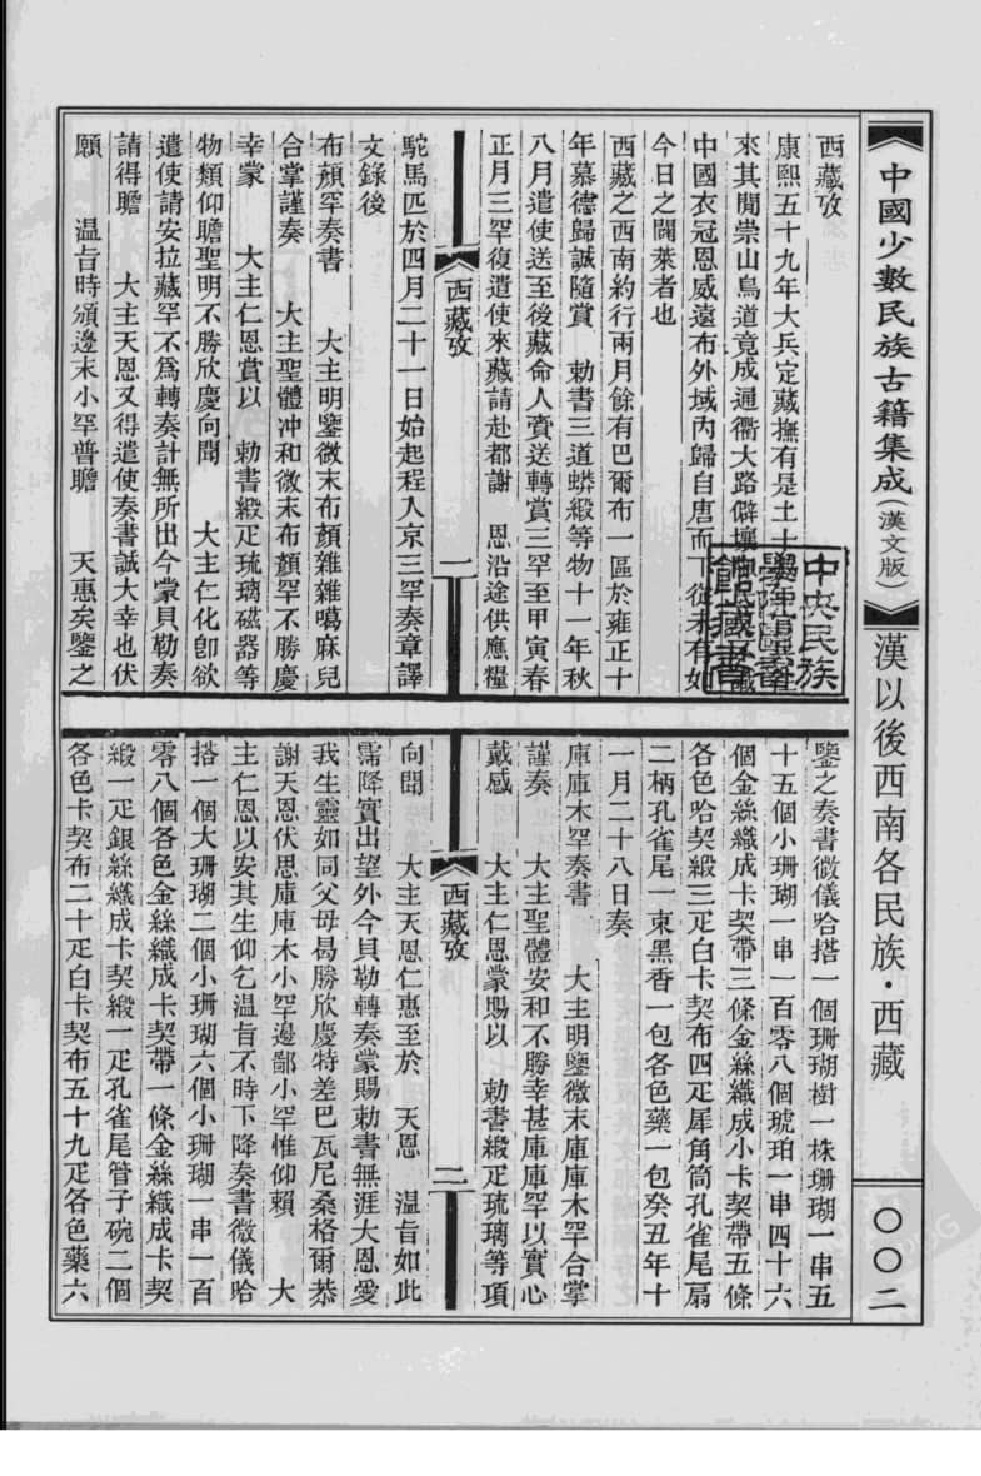 中國少數民族古籍集成(漢文版)
漢以後西南各民族·西藏
〇〇二
西藏攷
康熙五十九年大兵定藏撫有是土十
來其閒崇山鳥道竟成通衢大路僻壤
中國衣冠恩威遠布外域內歸自唐而下從未有如
今日之闢萊者也
西藏之西南約行兩月餘有巴爾布一區於雍正十
年慕德歸誠隨賞　勅書三道蟒緞等物十一年秋
八月遣使送至後藏命人賫送轉賞三罕至甲寅春
正月三罕復遣使來藏請赴都謝　恩沿途供應糧
西藏攷
一
駝馬匹於四月二十一日始起程人京三罕奏章譯
文錄後
布顏罕奏書　　大主明鑒微末布顏雜雜噶麻兒
合掌謹奏　　大主聖體冲和微末布顏罕不勝慶
幸蒙　　大主仁恩賞以　勅書緞疋琉璃磁器等
物類仰瞻聖明不勝欣慶向聞　　大主仁化卽欲
遣使請安拉藏罕不爲轉奏計無所出今蒙貝勒奏
請得瞻　　大主天恩又得遣使奏書誠大幸也伏
願　　温旨時頒邊末小罕普瞻　　天惠矣鑒之
鑒之奏書微儀哈搭一個珊瑚樹一株珊瑚一串五
十五個小珊瑚一串一百零八個琥珀一串四十六
個金絲織成卡契帶三條金絲織成小卡契帶五條
各色哈契緞三疋白卡契布四疋犀角筒孔雀尾扇
二柄孔雀尾一束黑香一包各色藥一包癸丑年十
一月二十八日奏
庫庫木罕奏書　　大主明鑒微末庫庫木罕合掌
謹奏　　大主聖體安和不勝幸甚庫庫罕以實心
戴感　　大主仁恩蒙賜以　勅書緞疋琉璃等項
西藏攷
二
向聞　　大主天恩仁惠至於　天恩　温旨如此
霈降實出望外今貝勒轉奏蒙賜勅書無涯大恩愛
我生靈如同父母曷勝欣慶特差巴瓦尼桑格爾恭
謝天恩伏思庫庫木小罕邊鄙小罕惟仰賴　　大
主仁恩以安其生仰乞温旨不時下降奏書微儀哈
搭一個大珊瑚二個小珊瑚六個小珊瑚一串一百
零八個各色金絲織成卡契帶一條金絲織成卡契
緞一疋銀絲織成卡契緞一疋孔雀尾管子碗二個
各色卡契布二十疋白卡契布五十九疋各色藥六